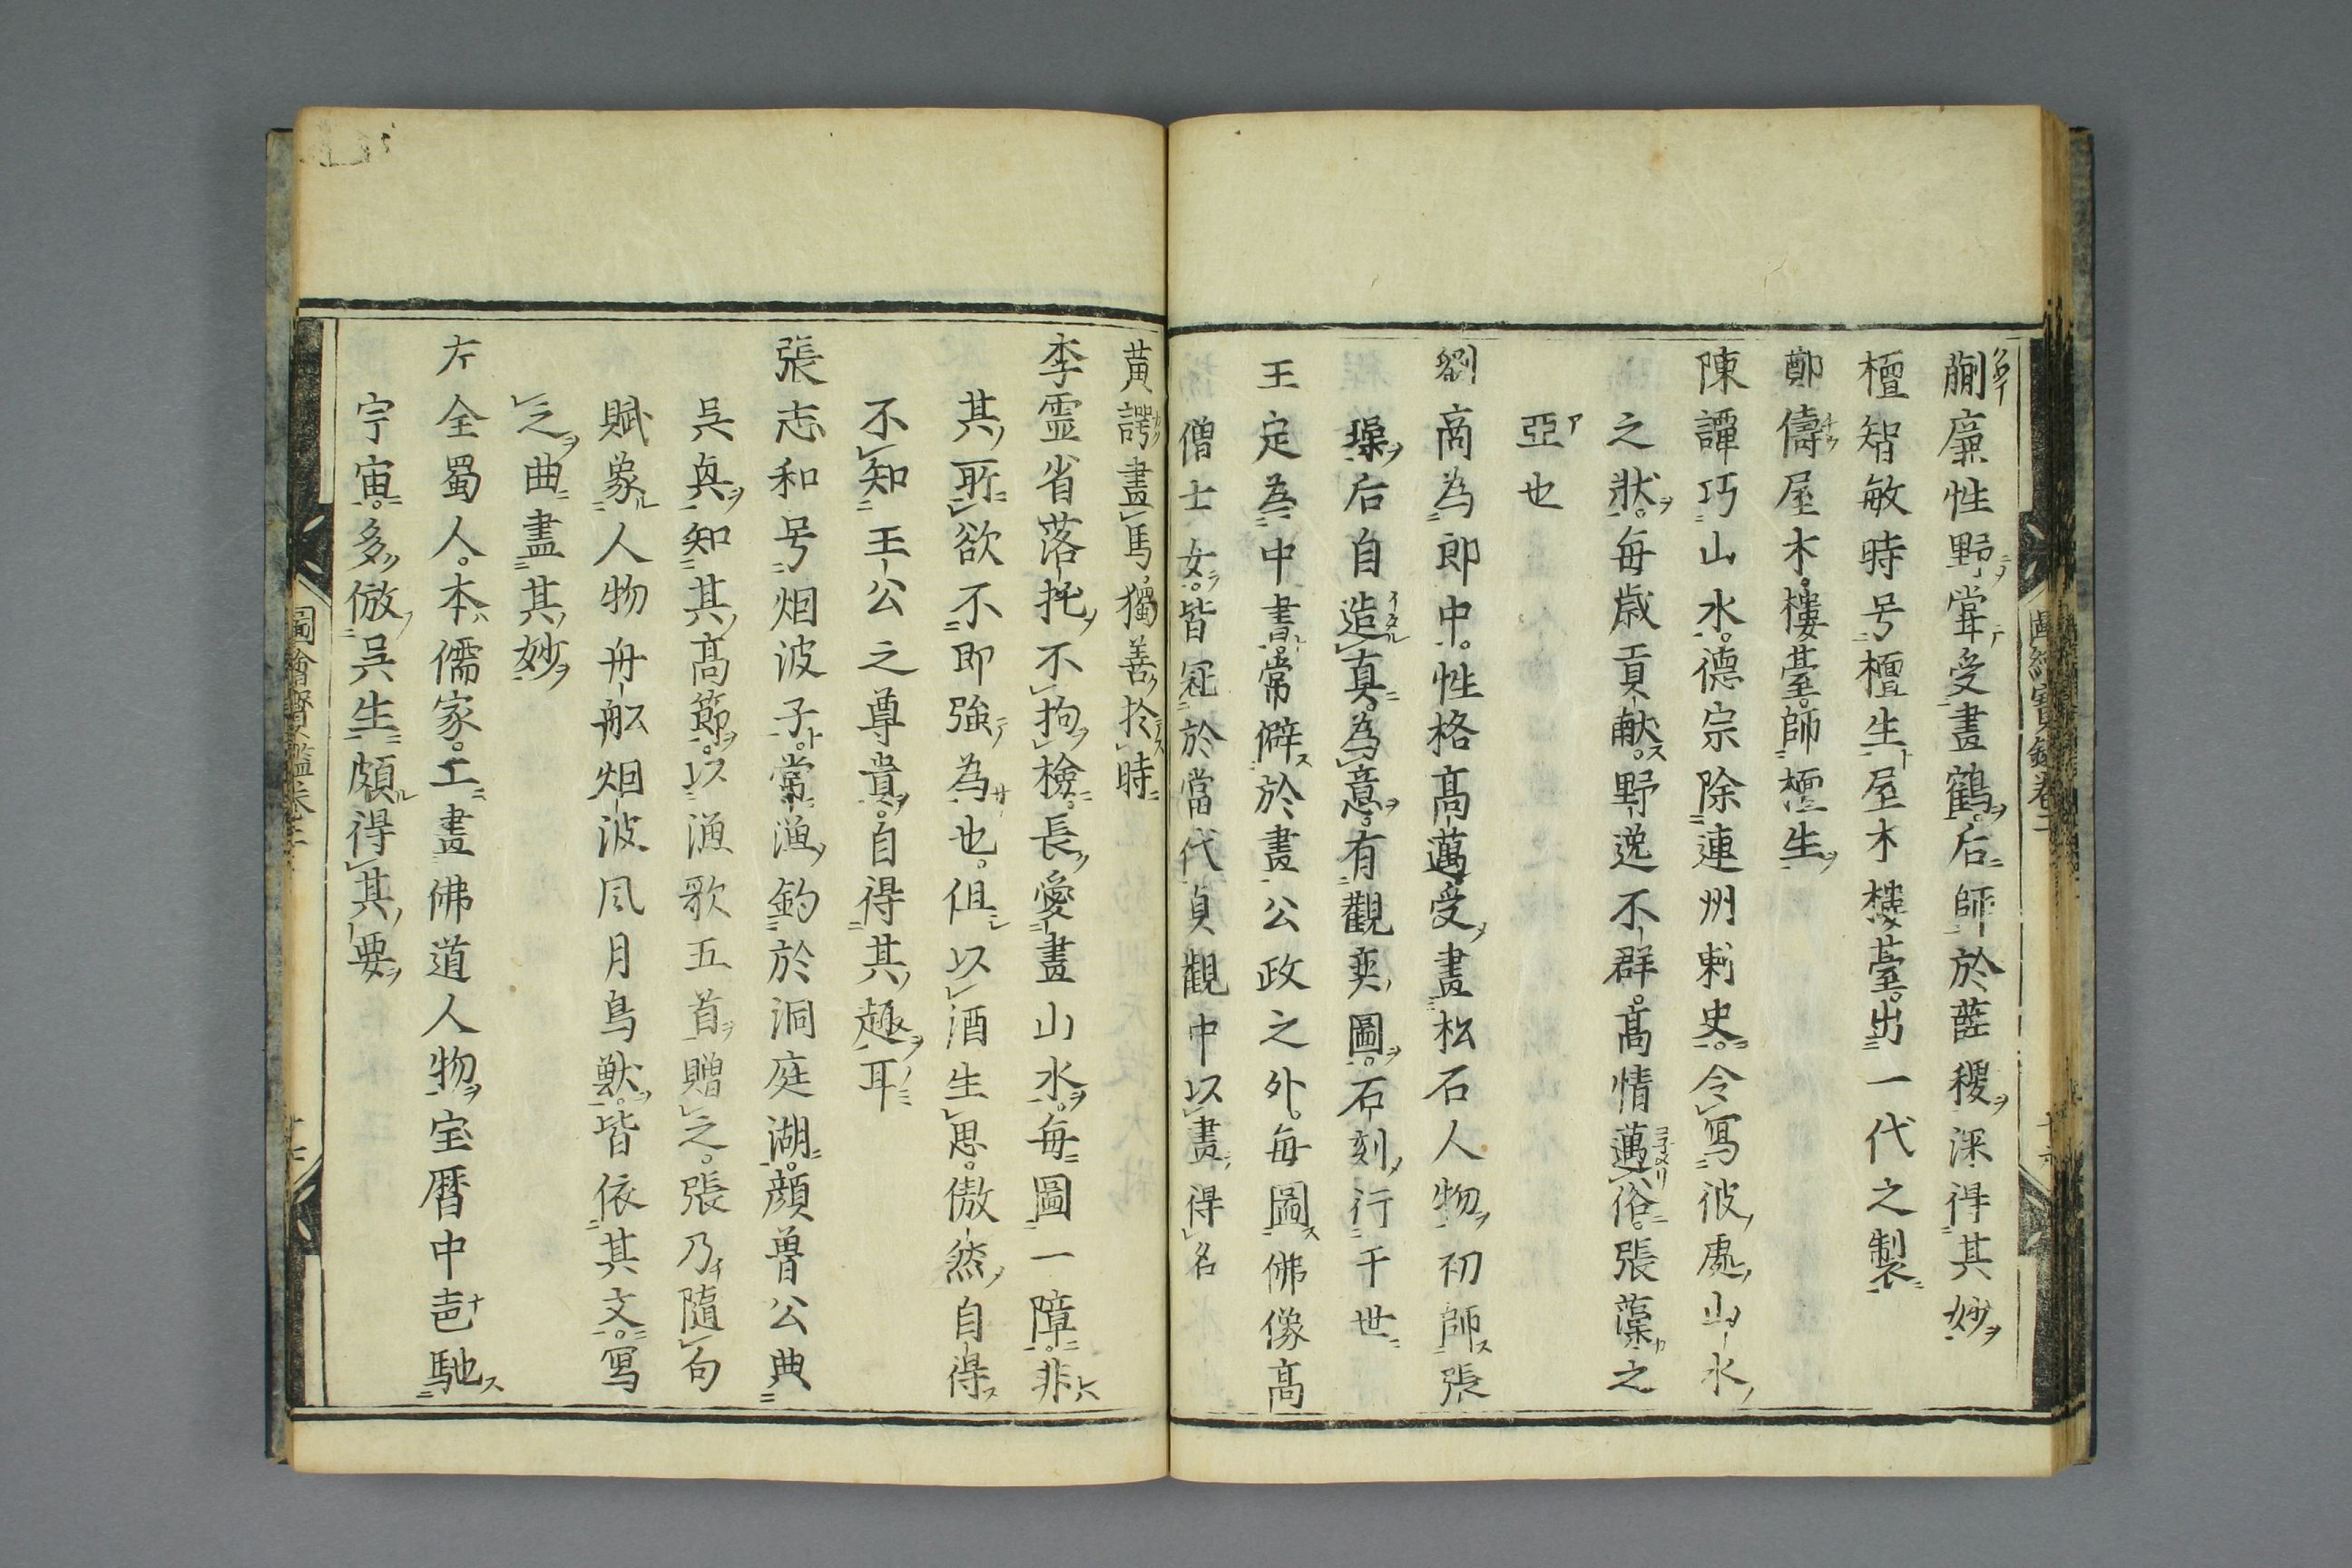 蒯廉性野嘗受畫鶴后師於薛稷深得其妙
檀智敏時号檀生屋木樓臺出一代之製
鄭儔屋木樓臺師檀生
陳譚巧山水德宗除連州刺史令写彼處山水
之狀每歲貢献野逸不群高情邁俗張藻之
亞也
劉商為郎中性格高邁受畫松石人物初師張
璪后自造真為意有觀奕圖石刻行于世
王定為中書常僻於畫公政之外每圖佛像高
僧士女皆冠於當代貞觀中以畫得名
黄諤畫馬獨善於時
李霊省落托不拘檢長愛畫山水每圖一障非
其所欲不即強為也但以酒生思傲然自得
不知王公之尊貴自得其趣耳
張志和号烟波子常漁釣於洞庭湖顔魯公典
吳興知其高節以漁歌五首贈之張乃随句
賦象人物舟舩烟波风月鳥獸皆依其文写
之曲盡其妙
左全蜀人本儒家工畫佛道人物宝暦中声馳
宇宙多倣吳生頗得其要
圖繪寳鑑卷二